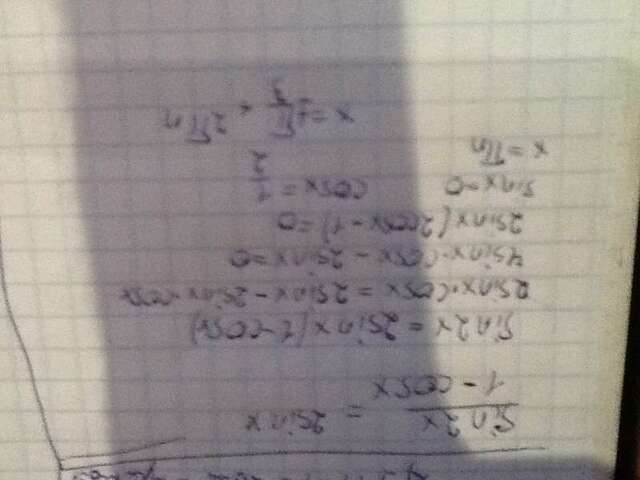 sin2x / 1 - cosx = 2sinx
sin2x = 2sinx(1-cosx)
2sinx·cosx = 2sinx - 2sinx·cosx
4sinx·cosx - 2sinx = 0
2sinx(2cosx - 1) = 0
sinx = 0 cosx = 1/2
x = πn
x = ±π/3 + 2πn